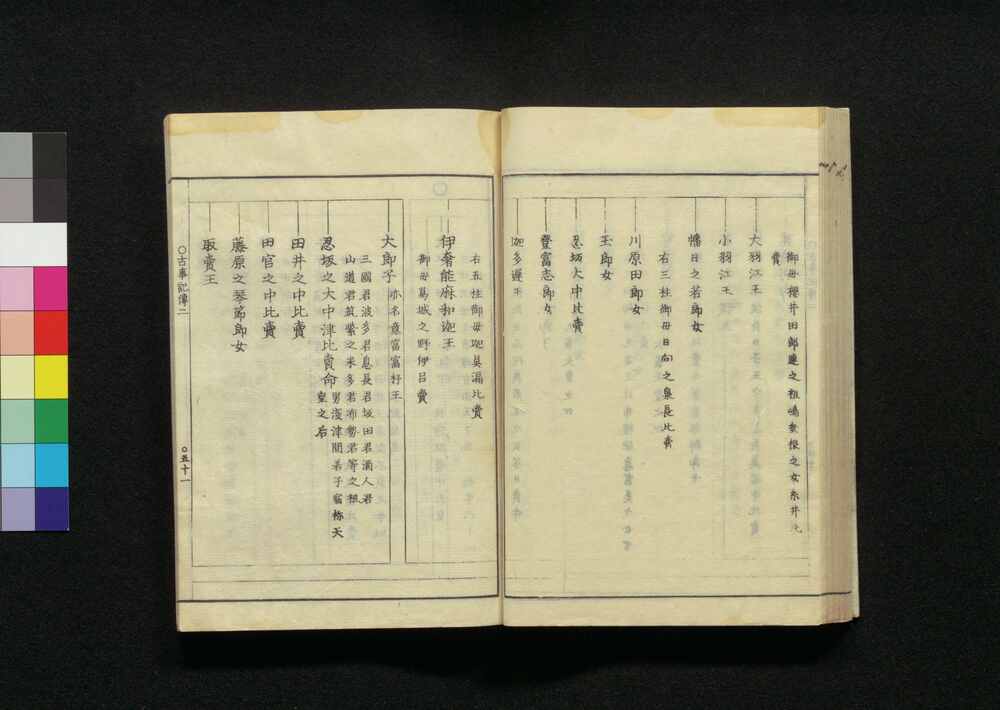 御母櫻井田部連之祖嶋垂根之女糸井比
賣
大羽江王
小羽江王
幡日之若郎女
右三柱御母日向之泉長比賣
川原田郎女
玉郎女
忍坂大中比賣
登富志郎女
迦多遲王
右五柱御母迦具漏比賣
伊奢能麻和迦王
御母葛城之野伊呂賣
大郎子
亦名意富富杼王
三國君波多君息長君坂田君酒人君
山道君筑紫之米多君布勢君等之祖
忍坂之大中津比賣命
男淺津間若子宿祢天
皇之后
田井之中比賣
田宮之中比賣
藤原之琴節郎女
取賣王
○古事記傳二
○五十一